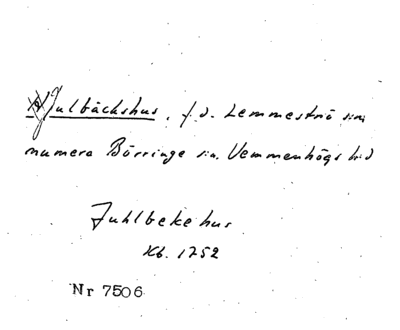 Julbäckshus, f.d. Lemmeströ sn,
numera Börringe sn. Vemmenhögs hd
Juhlbekehus
Kb. 1752
Nr 7506